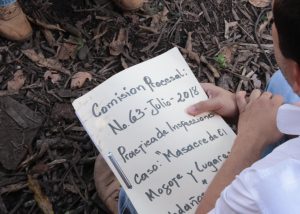 Comision Procesal:
No 63-Julio-2018
Practica de Inspeccion
Caso: "Masacre de El
Mozote y Lugares